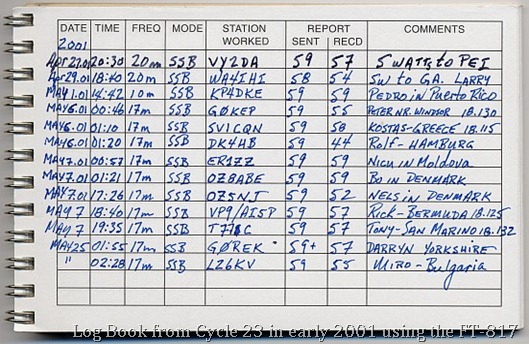 DATE TIME FREQ MODE STATION WORKED REPORT SENT RECD COMMENTS
2001
Apr 27.01 20:30 20m SSB VY2DA 59 57 5 WATTS to PEI
Apr 29.01 18:40 20m SSB WA4IHI 58 54 5W to GA. LARRY
MAY 1.01 14:42 10m SSB KP4DKE 59 59 PEDRO in Puerto Rico
MAY 6.01 00:46 17m SSB GØKEP 59 55 PETER NR. WINDSOR 18.130
MAY 6.01 01:10 17m SSB SV1CQN 59 58 KOSTAS-GREECE 18.115
MAY 6.01 01:20 17m SSB DK4HB 59 44 Rolf-HAMBURG
MAY 7.01 00:57 17m SSB ER1ZZ 59 59 NICU in Moldova
MAY 7.01 01:21 17m SSB OZ8ABE 59 59 BO in DENMARK
MAY 7.01 17:26 17m SSB OZ5NJ 59 52 NELS in DENMARK
MAY 7 18:40 17m SSB VP9/AI5P 59 57 Rick-BERMUDA 18.125
MAY 7 19:35 17m SSB T77C 59 57 TONY-SAN MARINO 18.132
MAY 25 01:55 17m SSB GØREK 59+ 57 DARRYN YORKSHIRE
" 02:28 17m SSB LZ6KV 59 55 MIRO-Bulgaria
Log Book from Cycle 23 in early 2001 using the FT-817